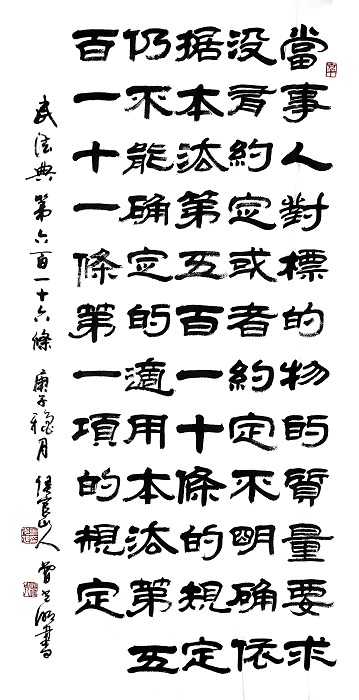 當事人對標的物的質量要求
没有約定或者約定不明确依
据本法第五百一十條的規定
仍不能确定的適用本法第五
百一十一條第一項的規定
民法典第六百一十六條 庚子 月 山人 書